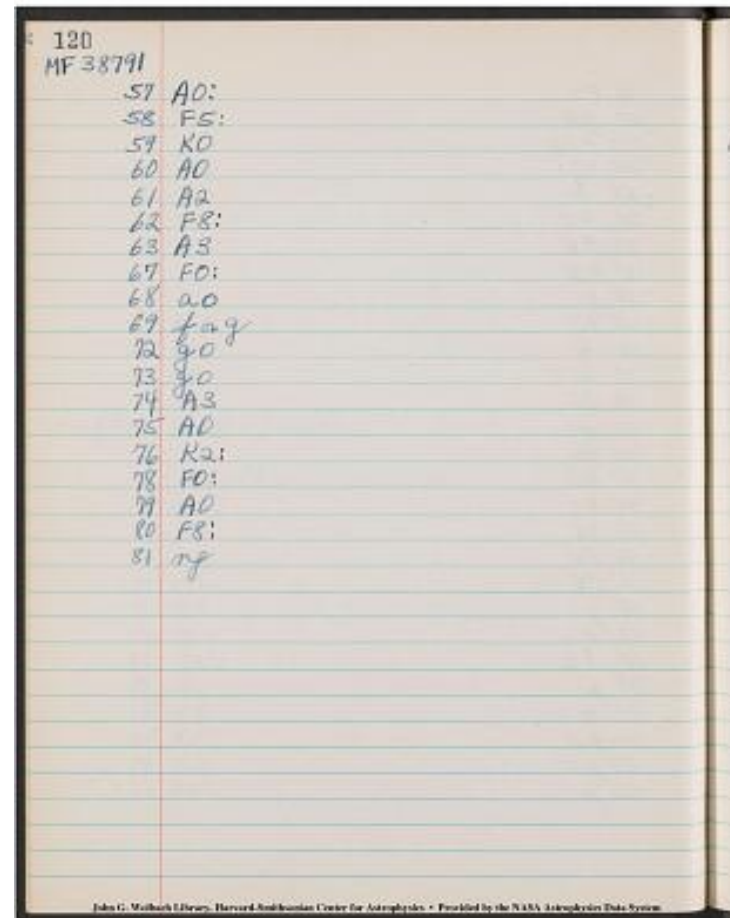 120
MF 38791
57 A0:
58 F5:
59 K0
60 A0
61 A2
62 F8:
63 A3
67 F0:
68 a0
69 fog
72 g0
73 g0
74 A3
75 A0
76 K2:
78 F0:
79 A0
80 F8:
81
John G. Wolbach Library, Harvard-Smithsonian Center for Astrophysics • Provided by the NASA Astrophysics Data System